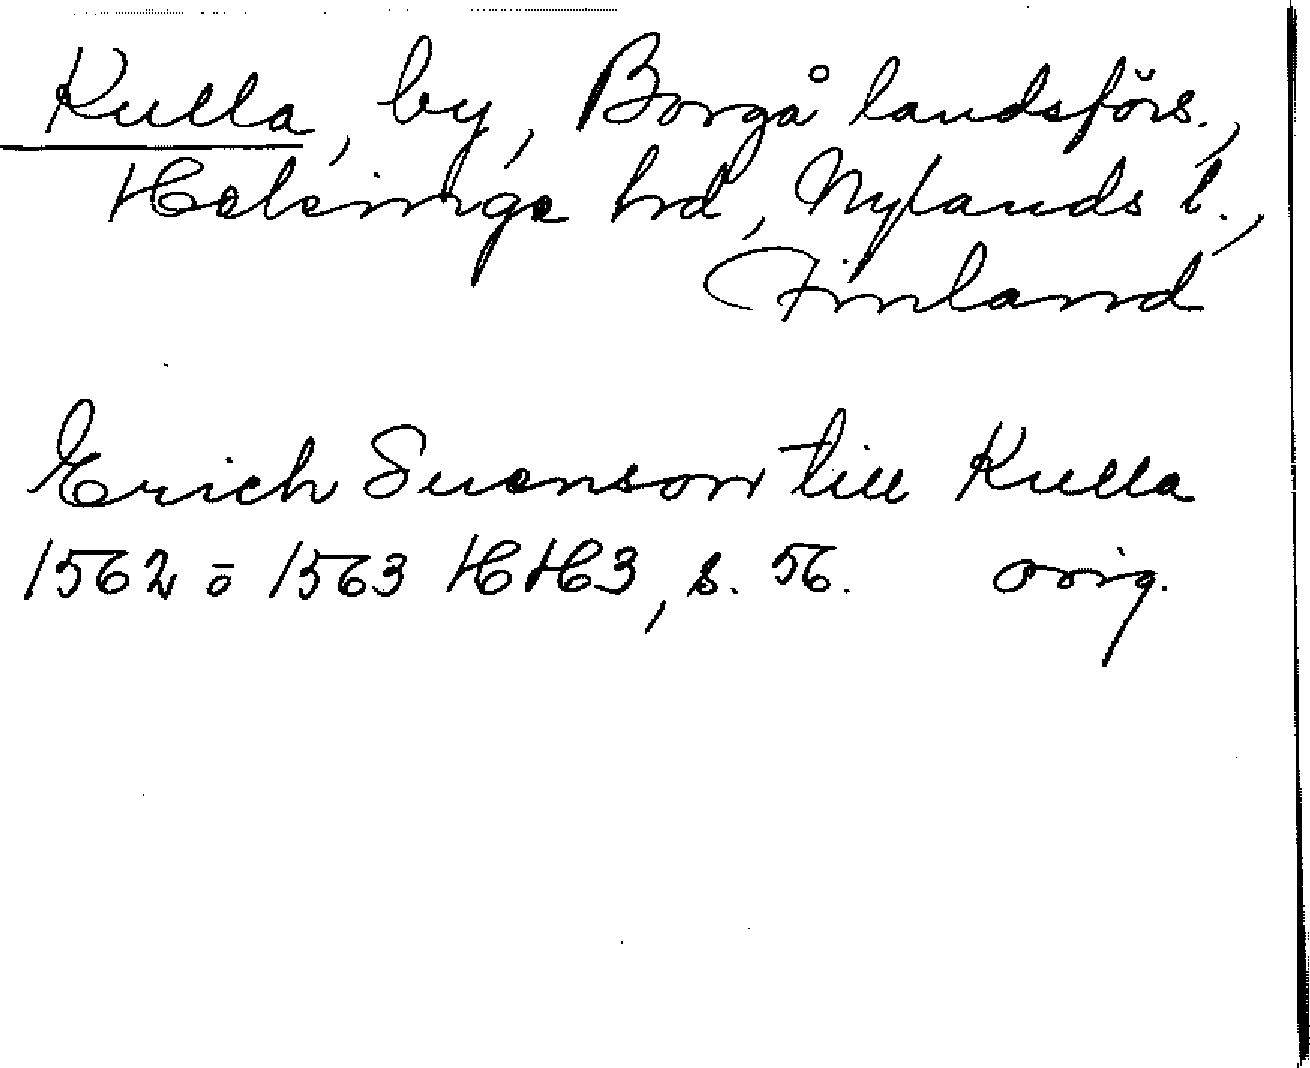 Kulla, by, Borgå landsförs.,
Helsinge hrd, Nylands l.,
Finland
Erich Suenson till Kulla
1562 o 1563 HH3, s. 56. orig.